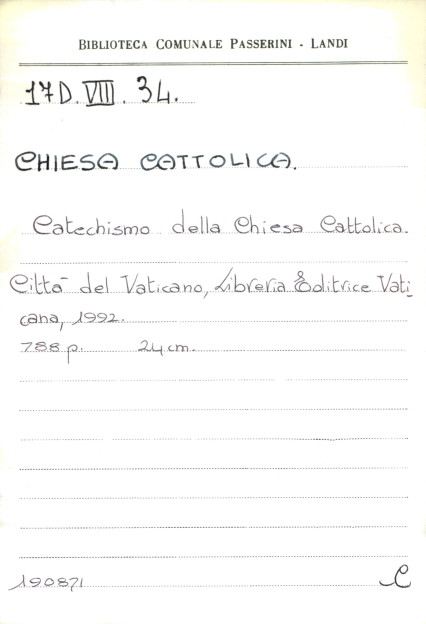 BIBLIOTECA COMUNALE PASSERINI - LANDI
17D. VIII. 34.
CHIESA CATTOLICA.
Catechismo della Chiesa Cattolica.
Città del Vaticano, Libreria Editrice Vati
cana, 1992.
788 p. 24 cm.
190871 C